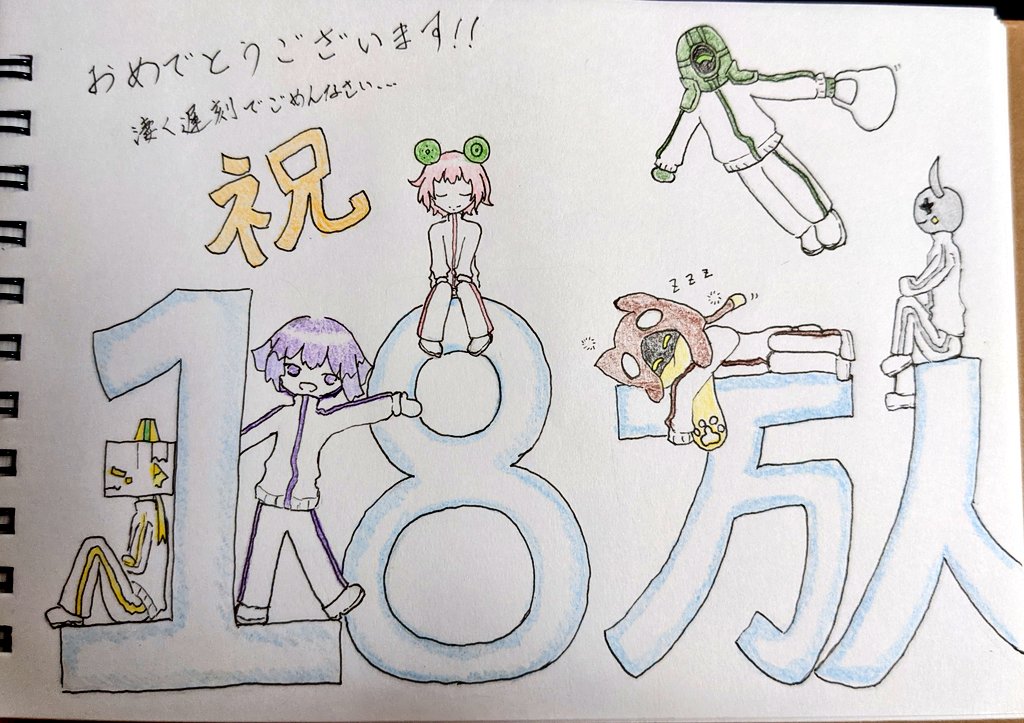 おめでとうございます!!
凄く遅刻でごめんなさい...
祝
18万人
zzz